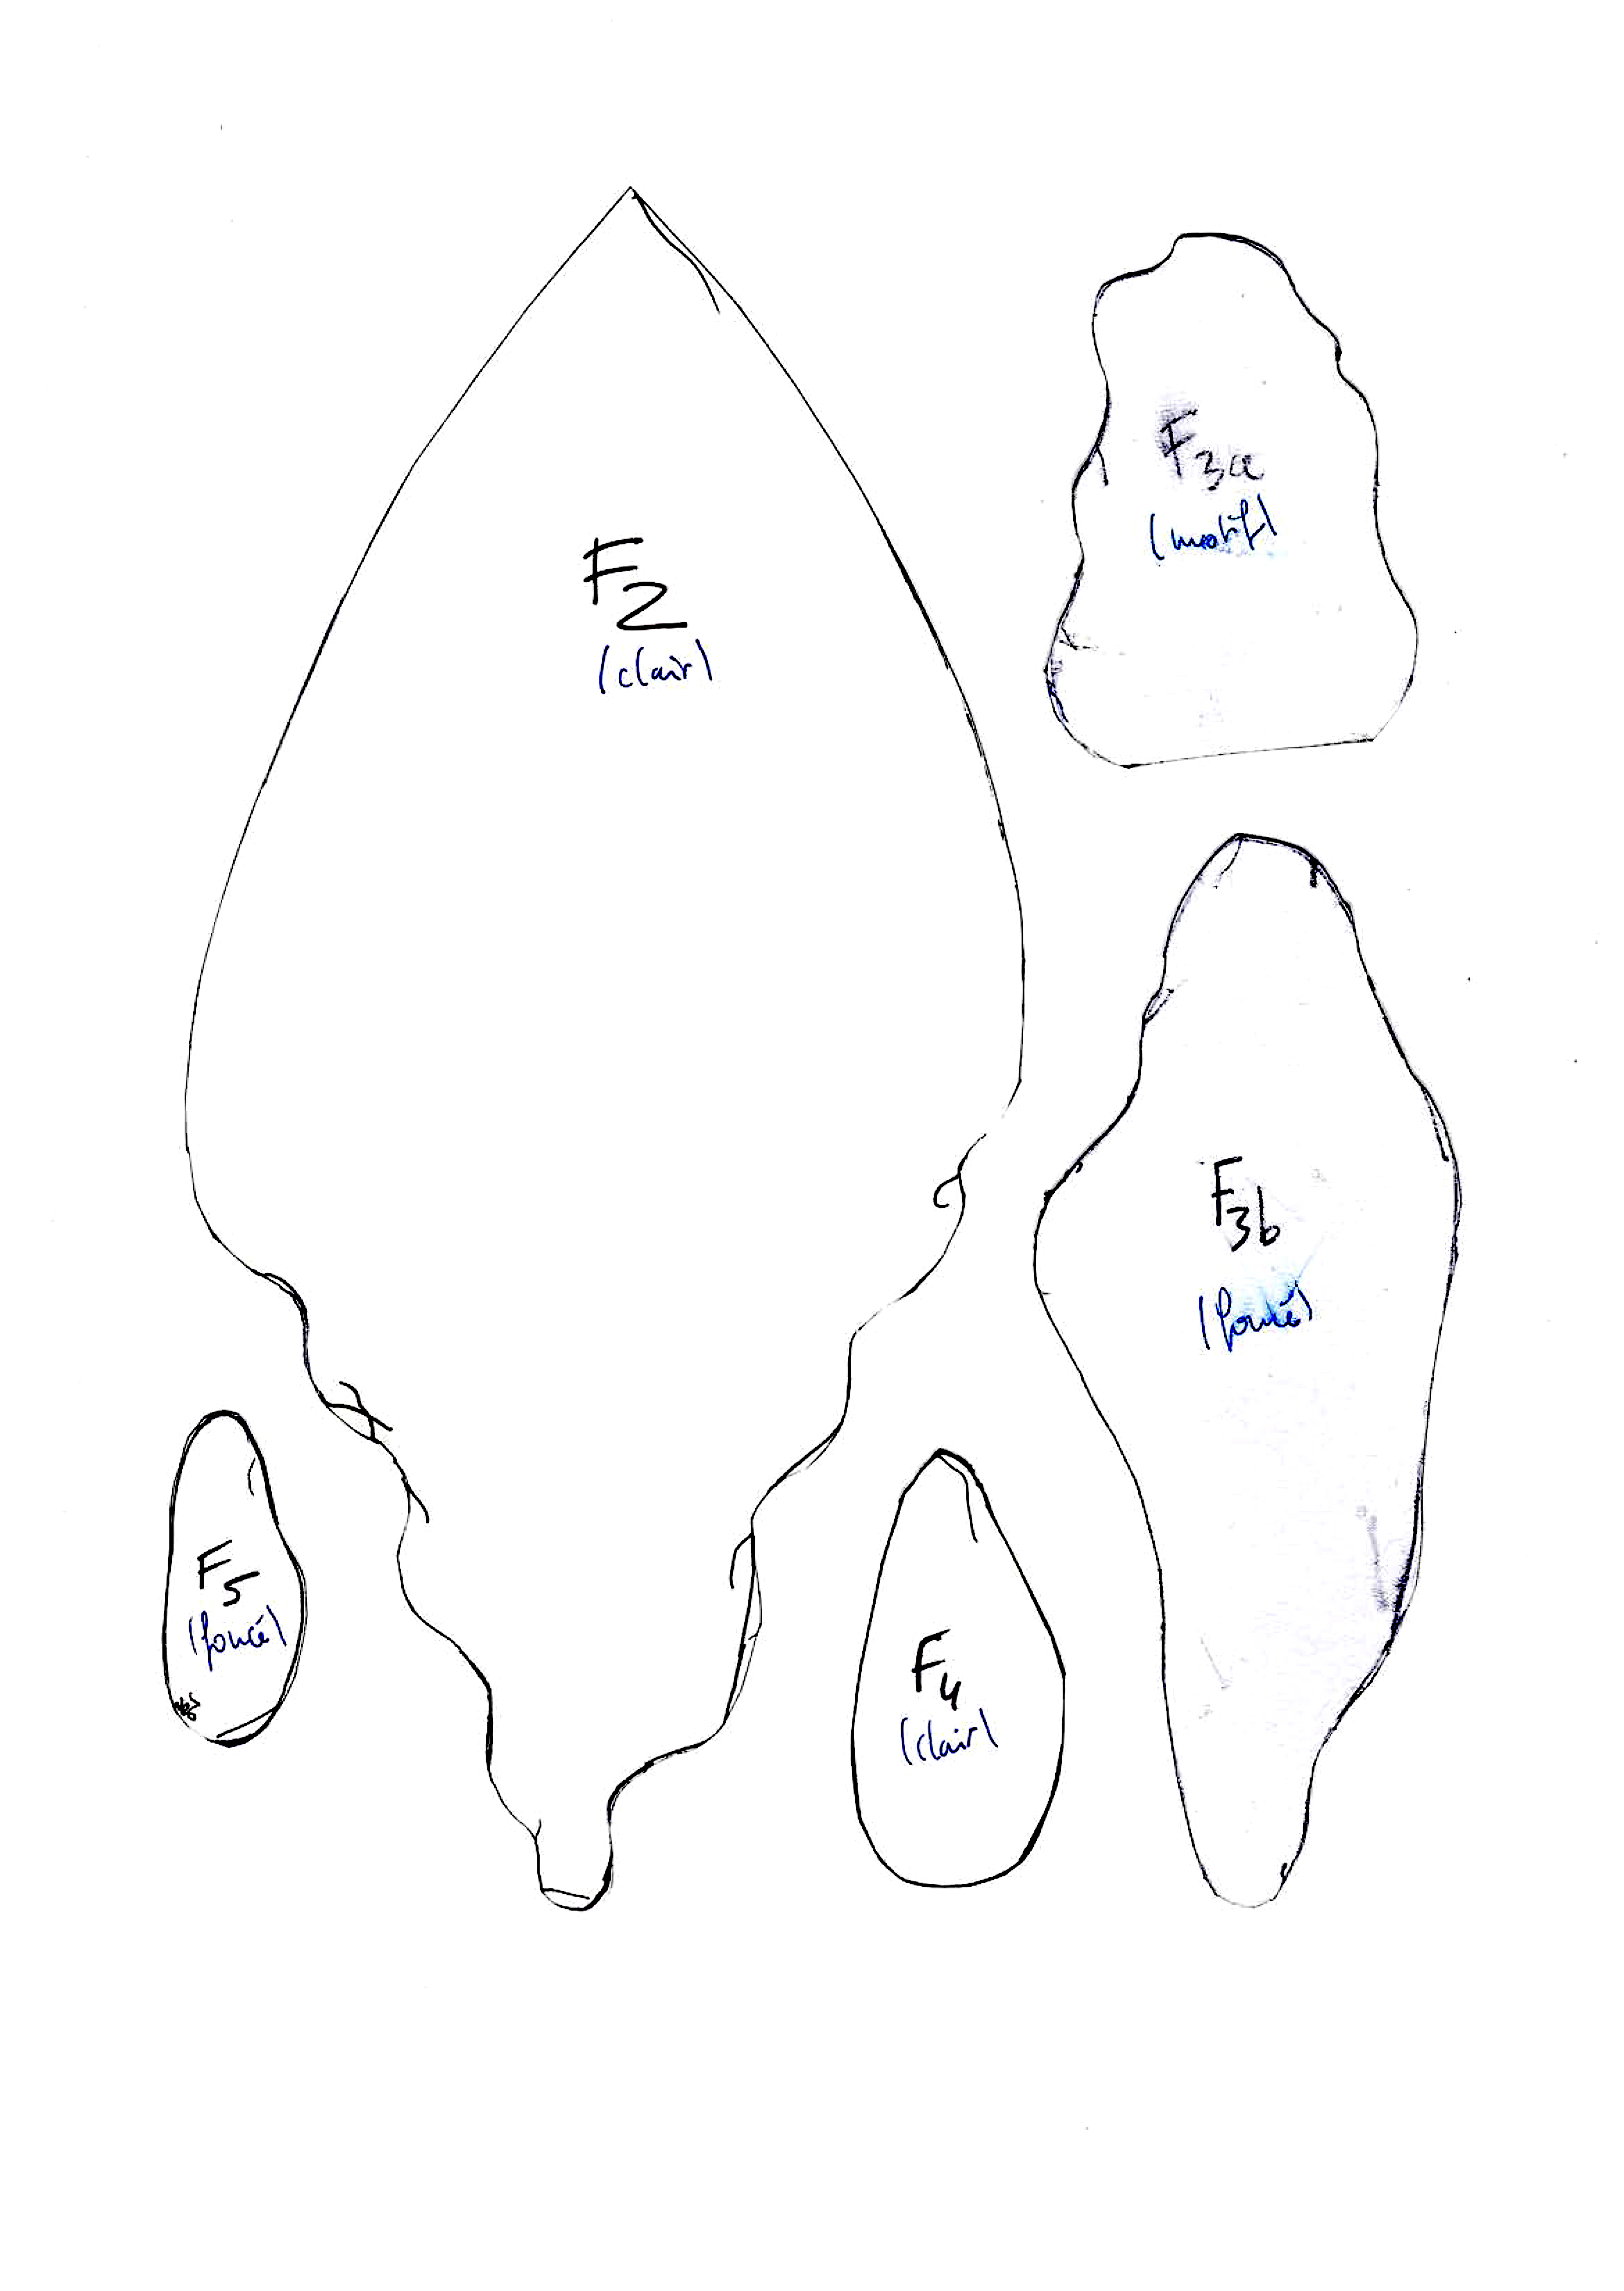 F2
(clair)
F3a
(motif)
F3b
(foncé)
F5
(foncé)
F4
(clair)